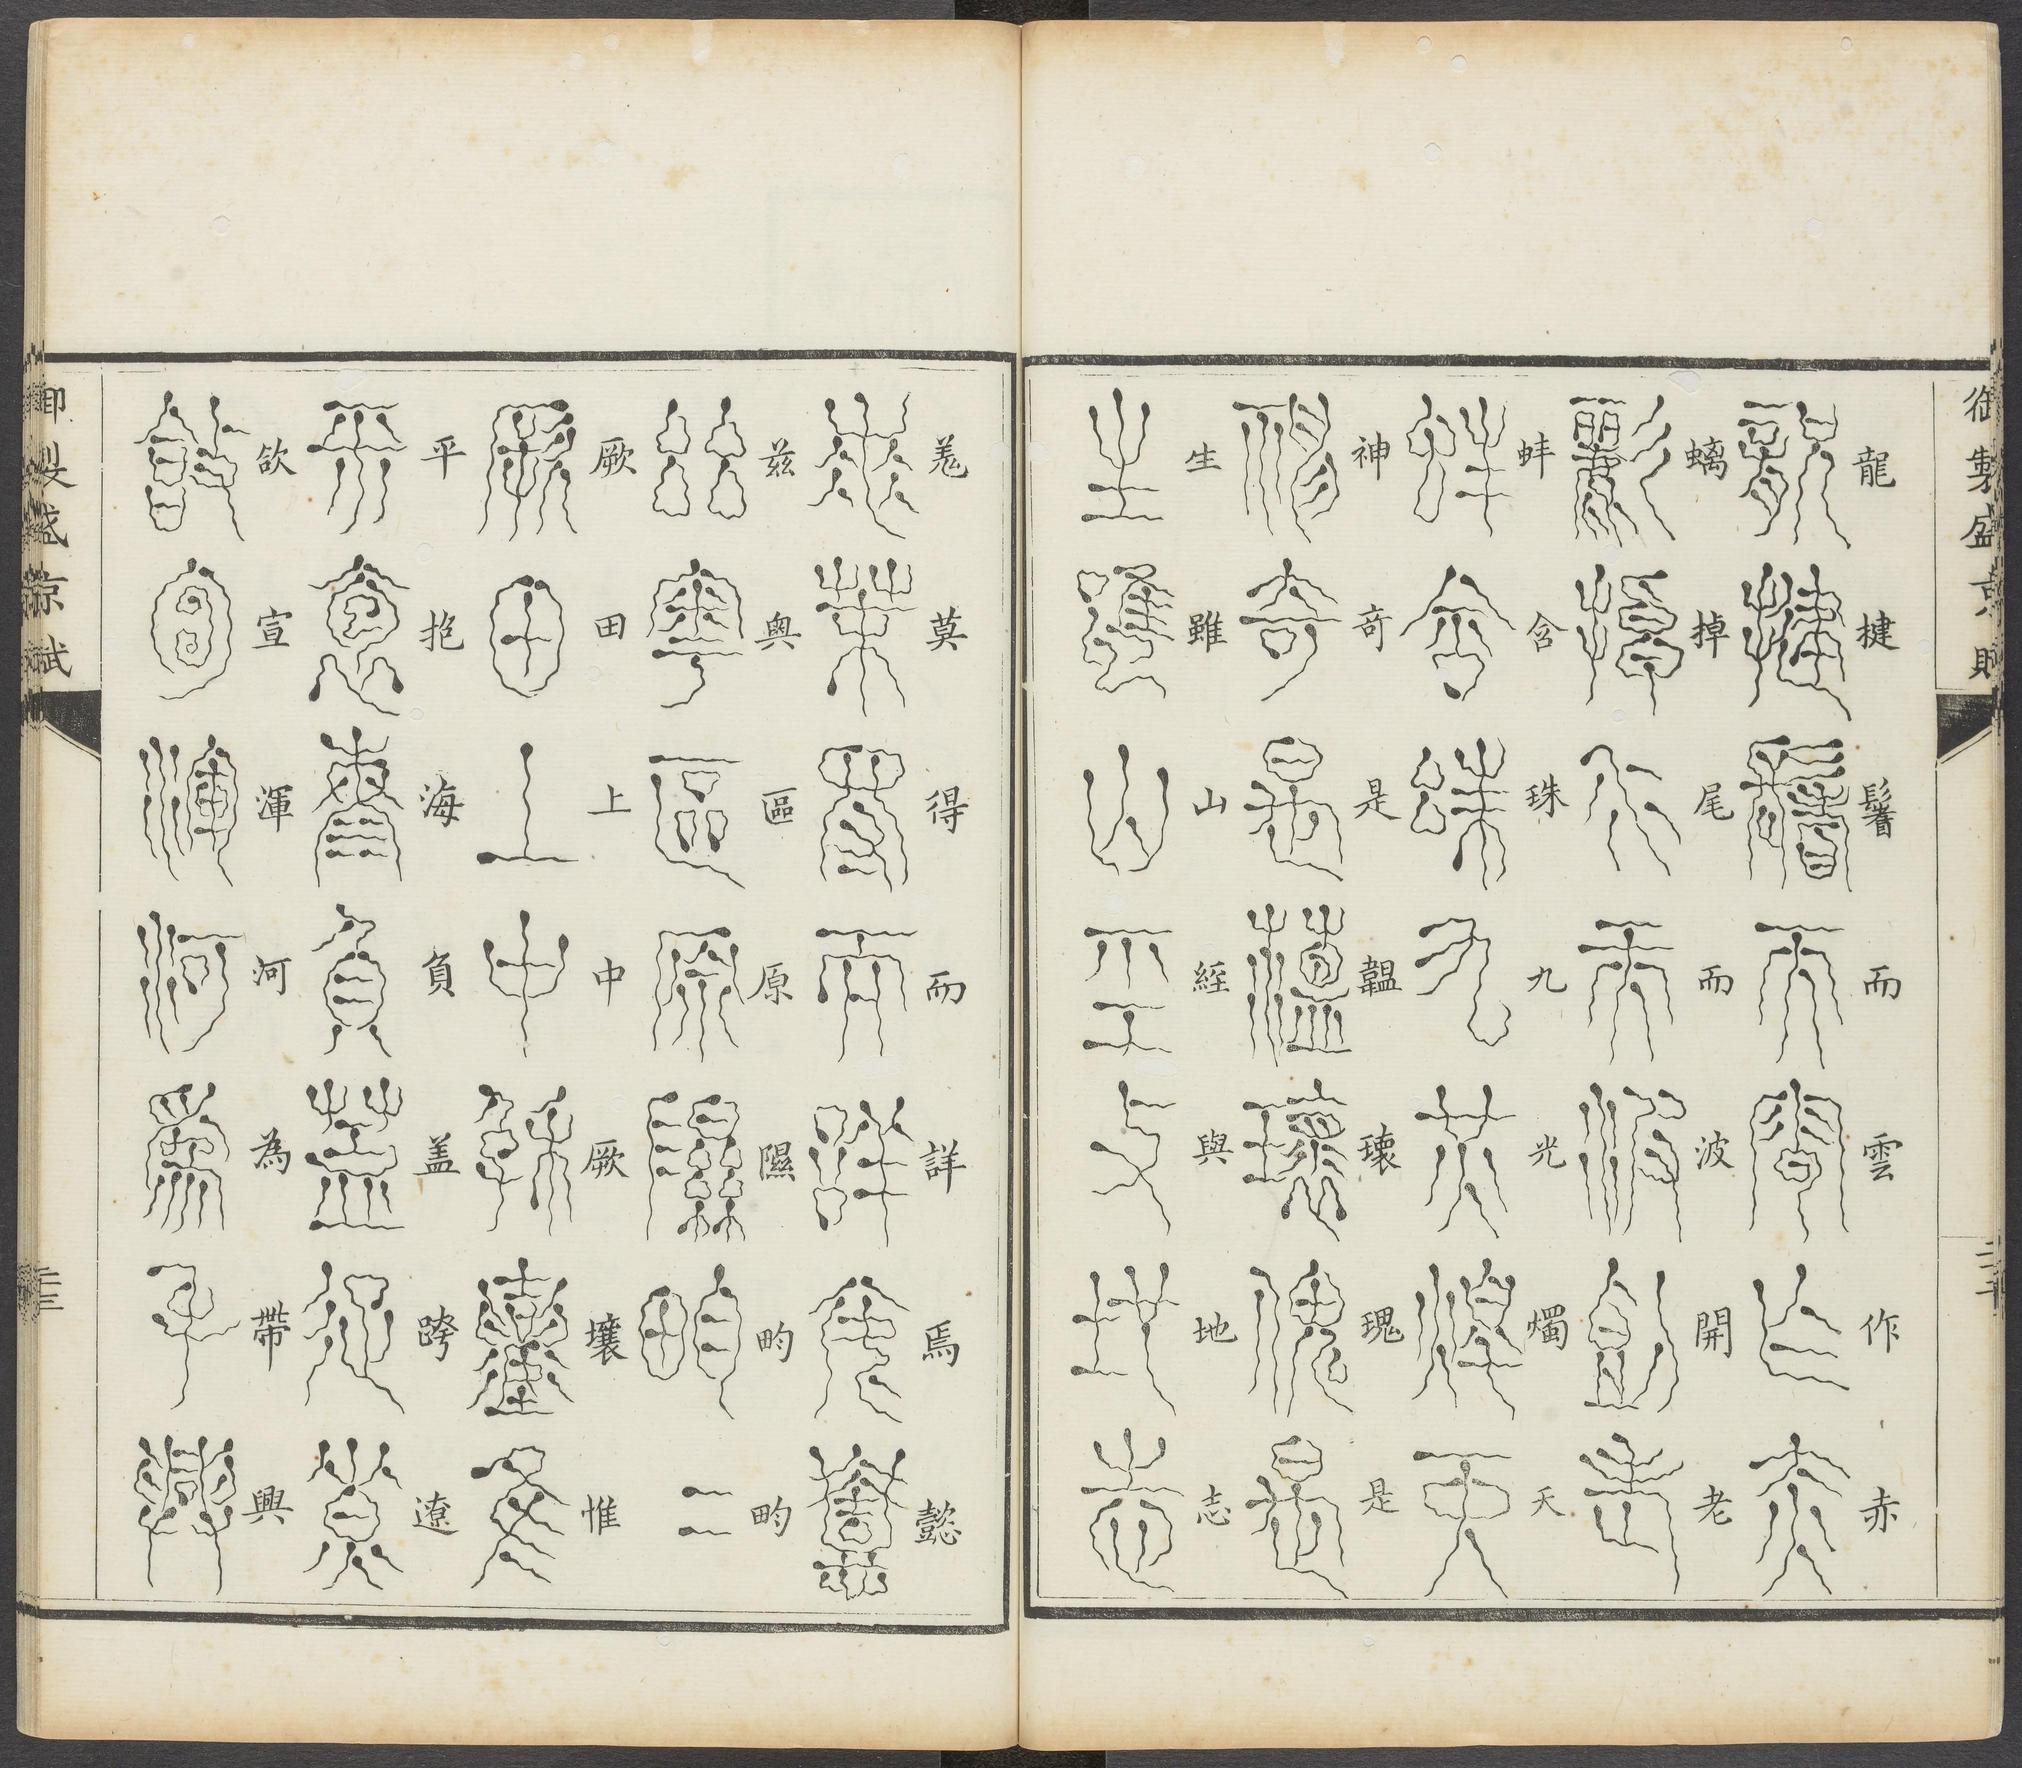 御製盛京賦
龍揵鬐而雲作赤
螭掉尾而波開老
蚌含珠九光燭天
神奇是韞瓌瑰是
生雖山經與地志
羌莫得而詳焉懿
茲奧區原隰畇畇
厥田上中厥壤惟
平抱海負蓋跨遼
欱宣渾河為帶興
御製盛京賦